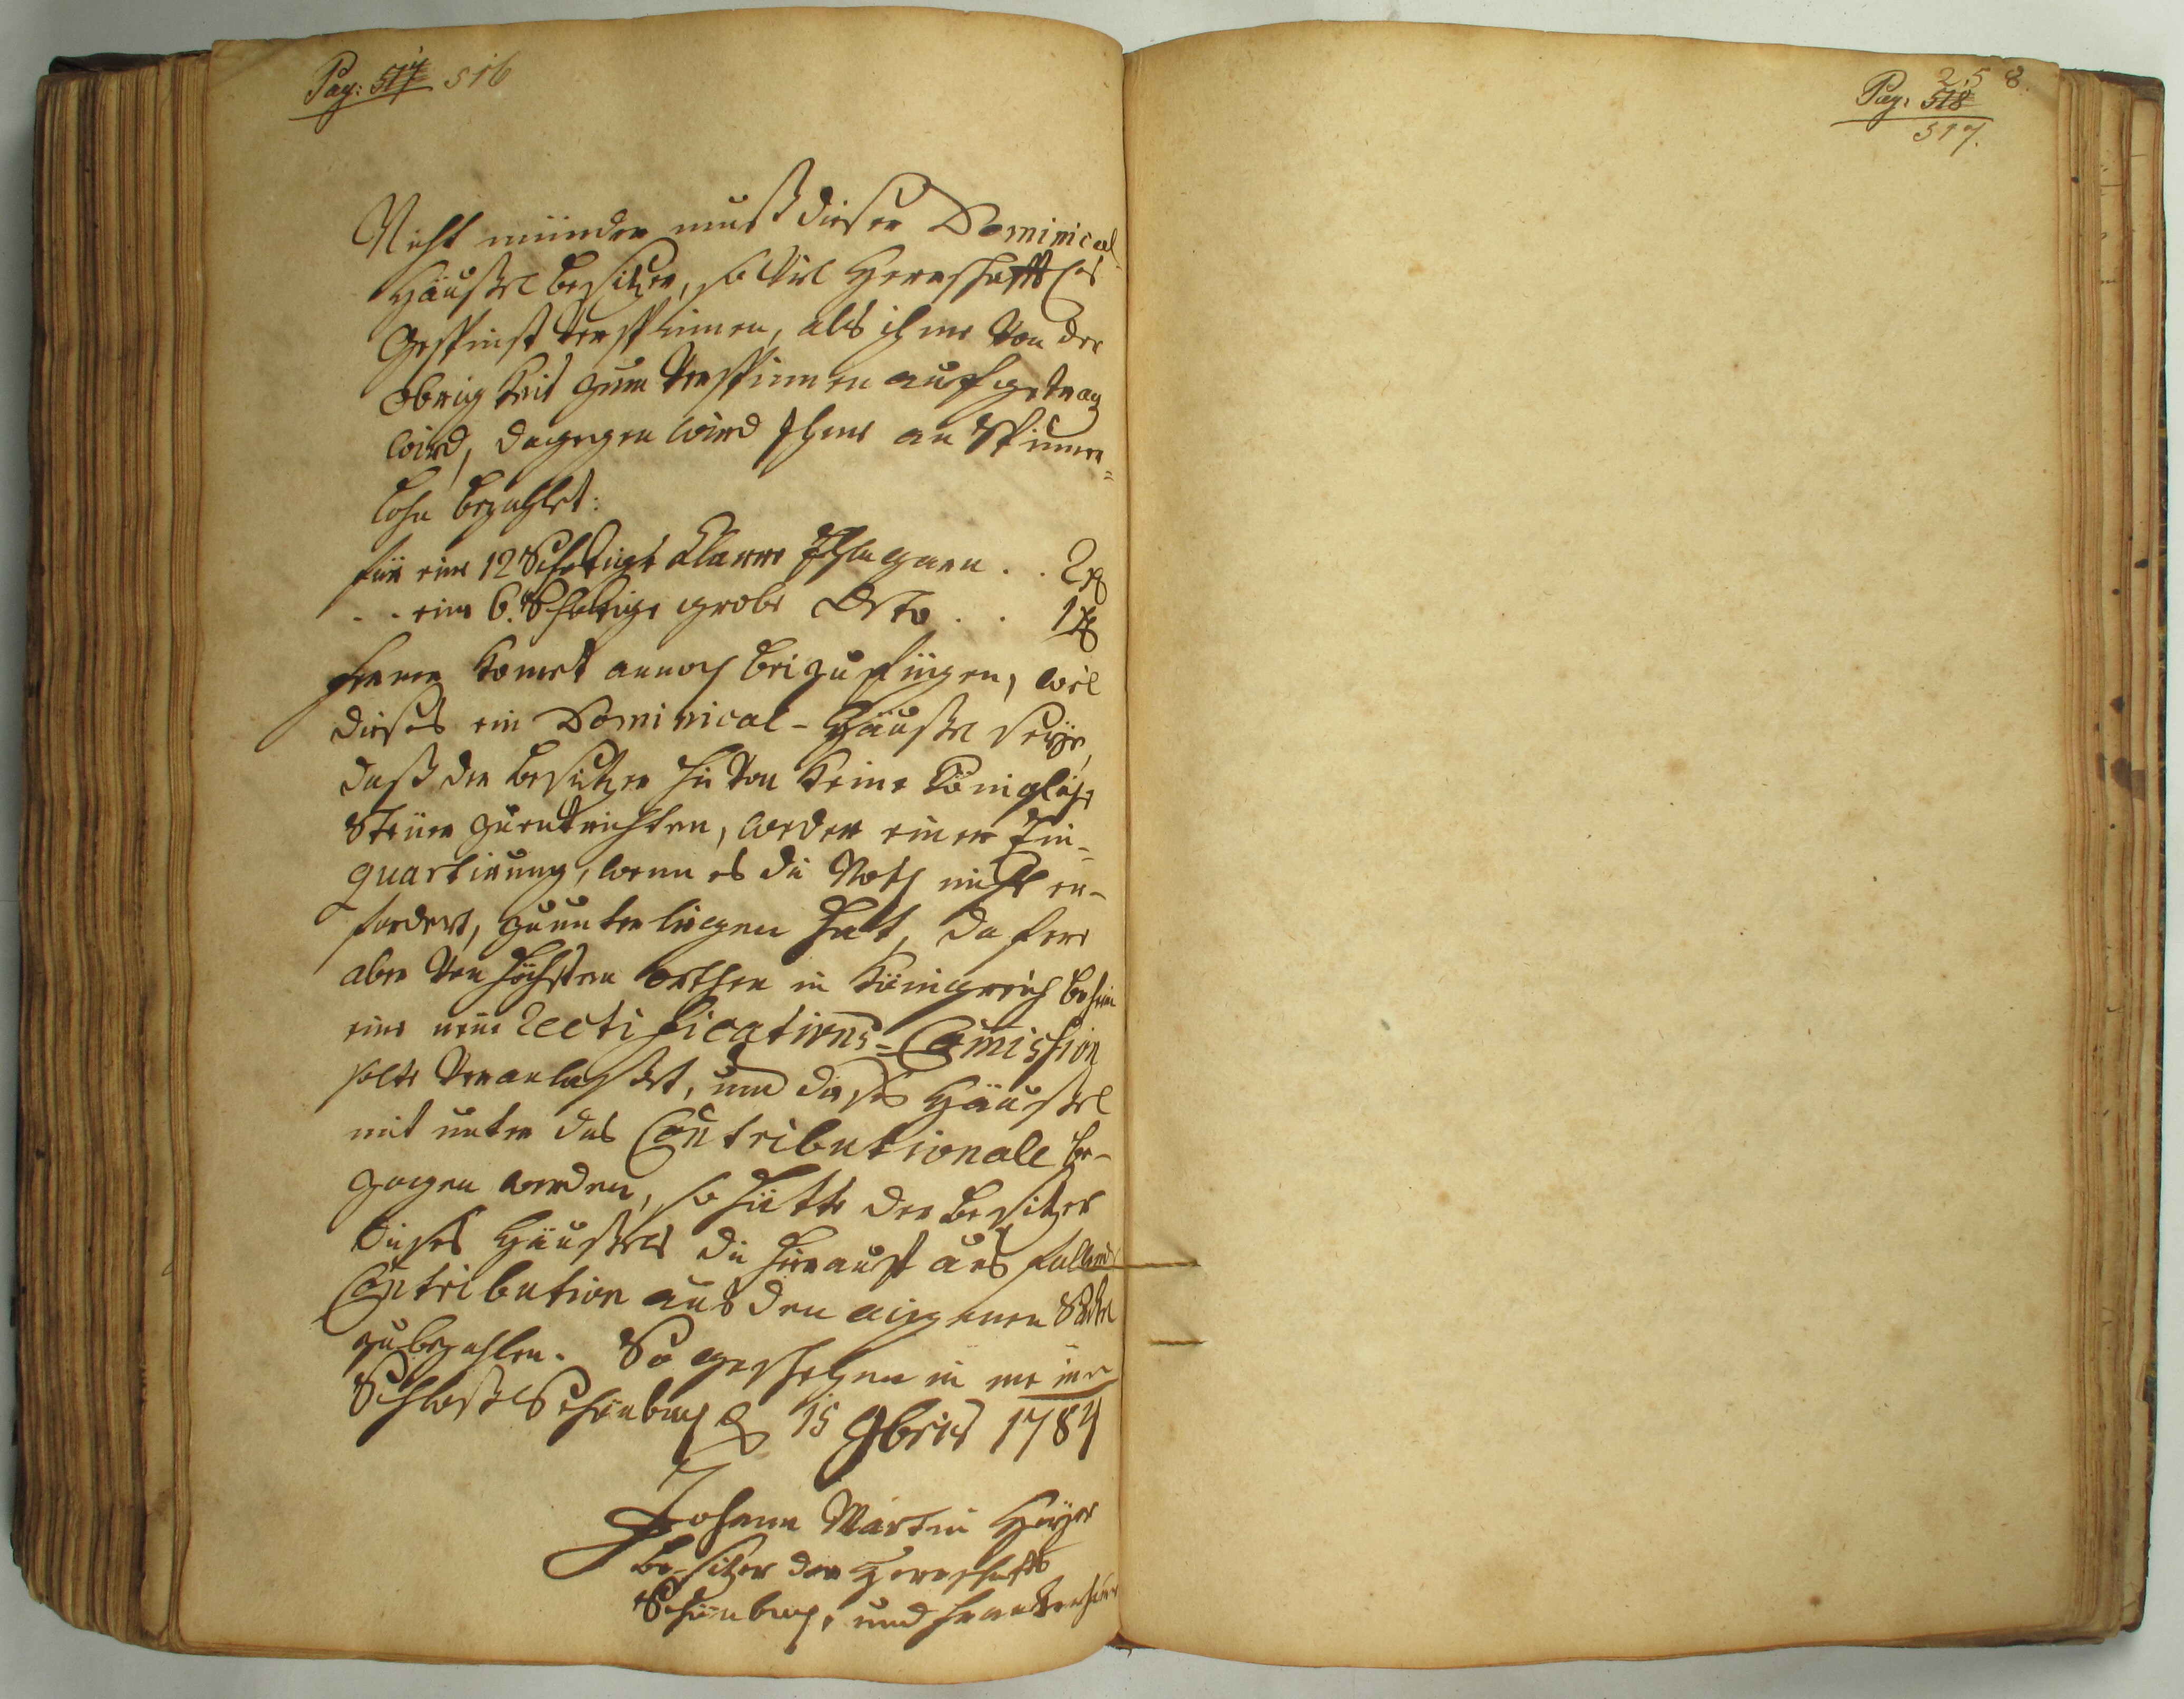 Pag: 517 516
Nicht minder muß dieser Dominical-
Häußel besitzer, so viel Herrschafftles
Gespinst verspinnen, als ihme von der
obrigkeit zum verspinnen aufgetrag
wird, dagegen wird Ihme an Spinner=
lohn bezahlet:
für eine 12 Schokige klare garn . . 2 x
. . eine 6. Schokige grobe dto . . 1 x
ferner komet annoch beizufügen, weil
dieses ein Dominical-Häußel seye,
daß der besitzer hievon keine Königliche
Steüer zuentrichten, weder einer Ein-
quartirung, wenn es die Noth nicht er-
fordert, zuunterliegen hat, da fern
aber von höchsten orthen in Königreich Behm
eine neue Rectifications=Comission
solte veranlasset, und dieses Häußel
mit unter das Contributionale be-
zogen werden, so hätte der besitzer
dieses Häußels die hierauf aus fallende
Contribution aus den aigenen Säkel
zubezahlen. So geschehen in meiner
Schloß Schönbach d 15 9bris 1784
Johann Martin Heyer
besitzer der Herrschafft
Schönbach, und
258.
Pag: 518
517.